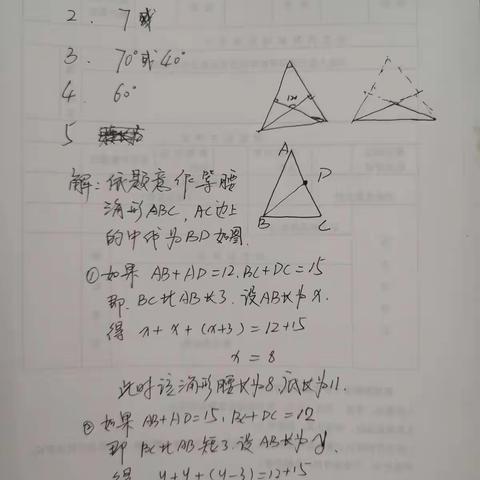 2. 7或
3. 70°或40°
4. 60°
120
5
A
D
B
C
解:依题意作等腰
三角形ABC,AC边上
的中线为BD如图.
①如果 AB+AD=12,BC+DC=15
即 BC比AB长3.设AB长为x.
得 x+x+(x+3)=12+15
x=8
此时该三角形腰长为8,底长为11.
②如果 AB+AD=15,BC+DC=12
即 BC比AB短3.设AB长为y.
得 y+y+(y-3)=12+15